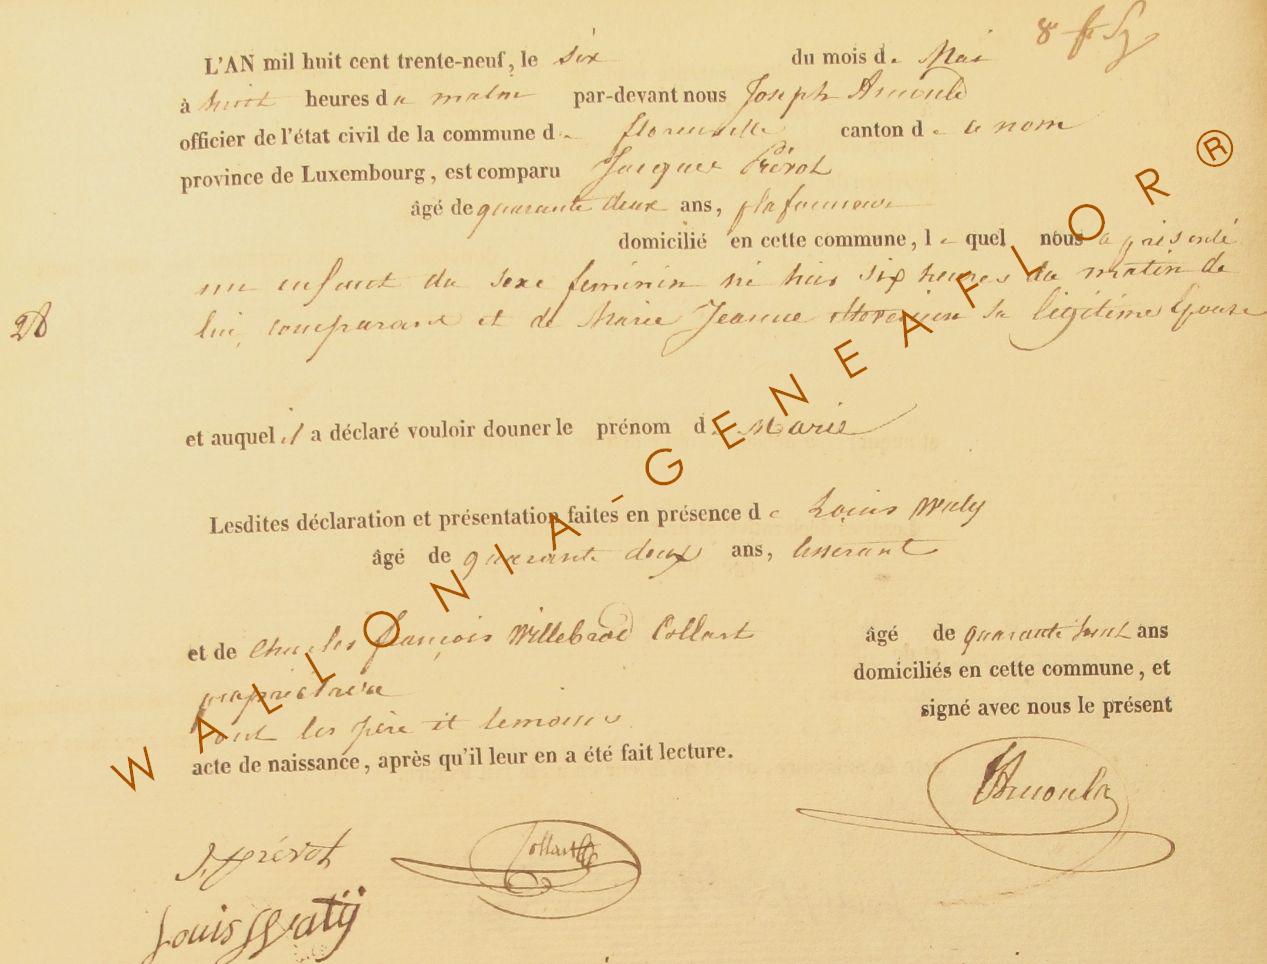 L'AN mil huit cent trente-neuf, le six du mois de Mai
à huit heures du matin par-devant nous Joseph Arnould
officier de l'état civil de la commune de florenville canton de ce nom
province de Luxembourg, est comparu Jacques Prévot
âgé de quarante deux ans, plafonneur
domicilié en cette commune, le quel nous a présenté
un enfant du sexe féminin né hier six heures du matin de
lui, comparant et de Marie Jeanne sa légitime épouse
28
et auquel il a déclaré vouloir donner le prénom de Marie
Lesdites déclaration et présentation faites en présence de Louis Waty
âgé de quarante deux ans, tisserant
et de Charles françois Willebrod Collart âgé de quarante huit ans
propriétaire domiciliés en cette commune, et
ont les père et témoins signé avec nous le présent
acte de naissance, après qu'il leur en a été fait lecture.
Arnould
J. prévot Collart
Louis Watÿ
WALLONIA-GENEAFLOR®